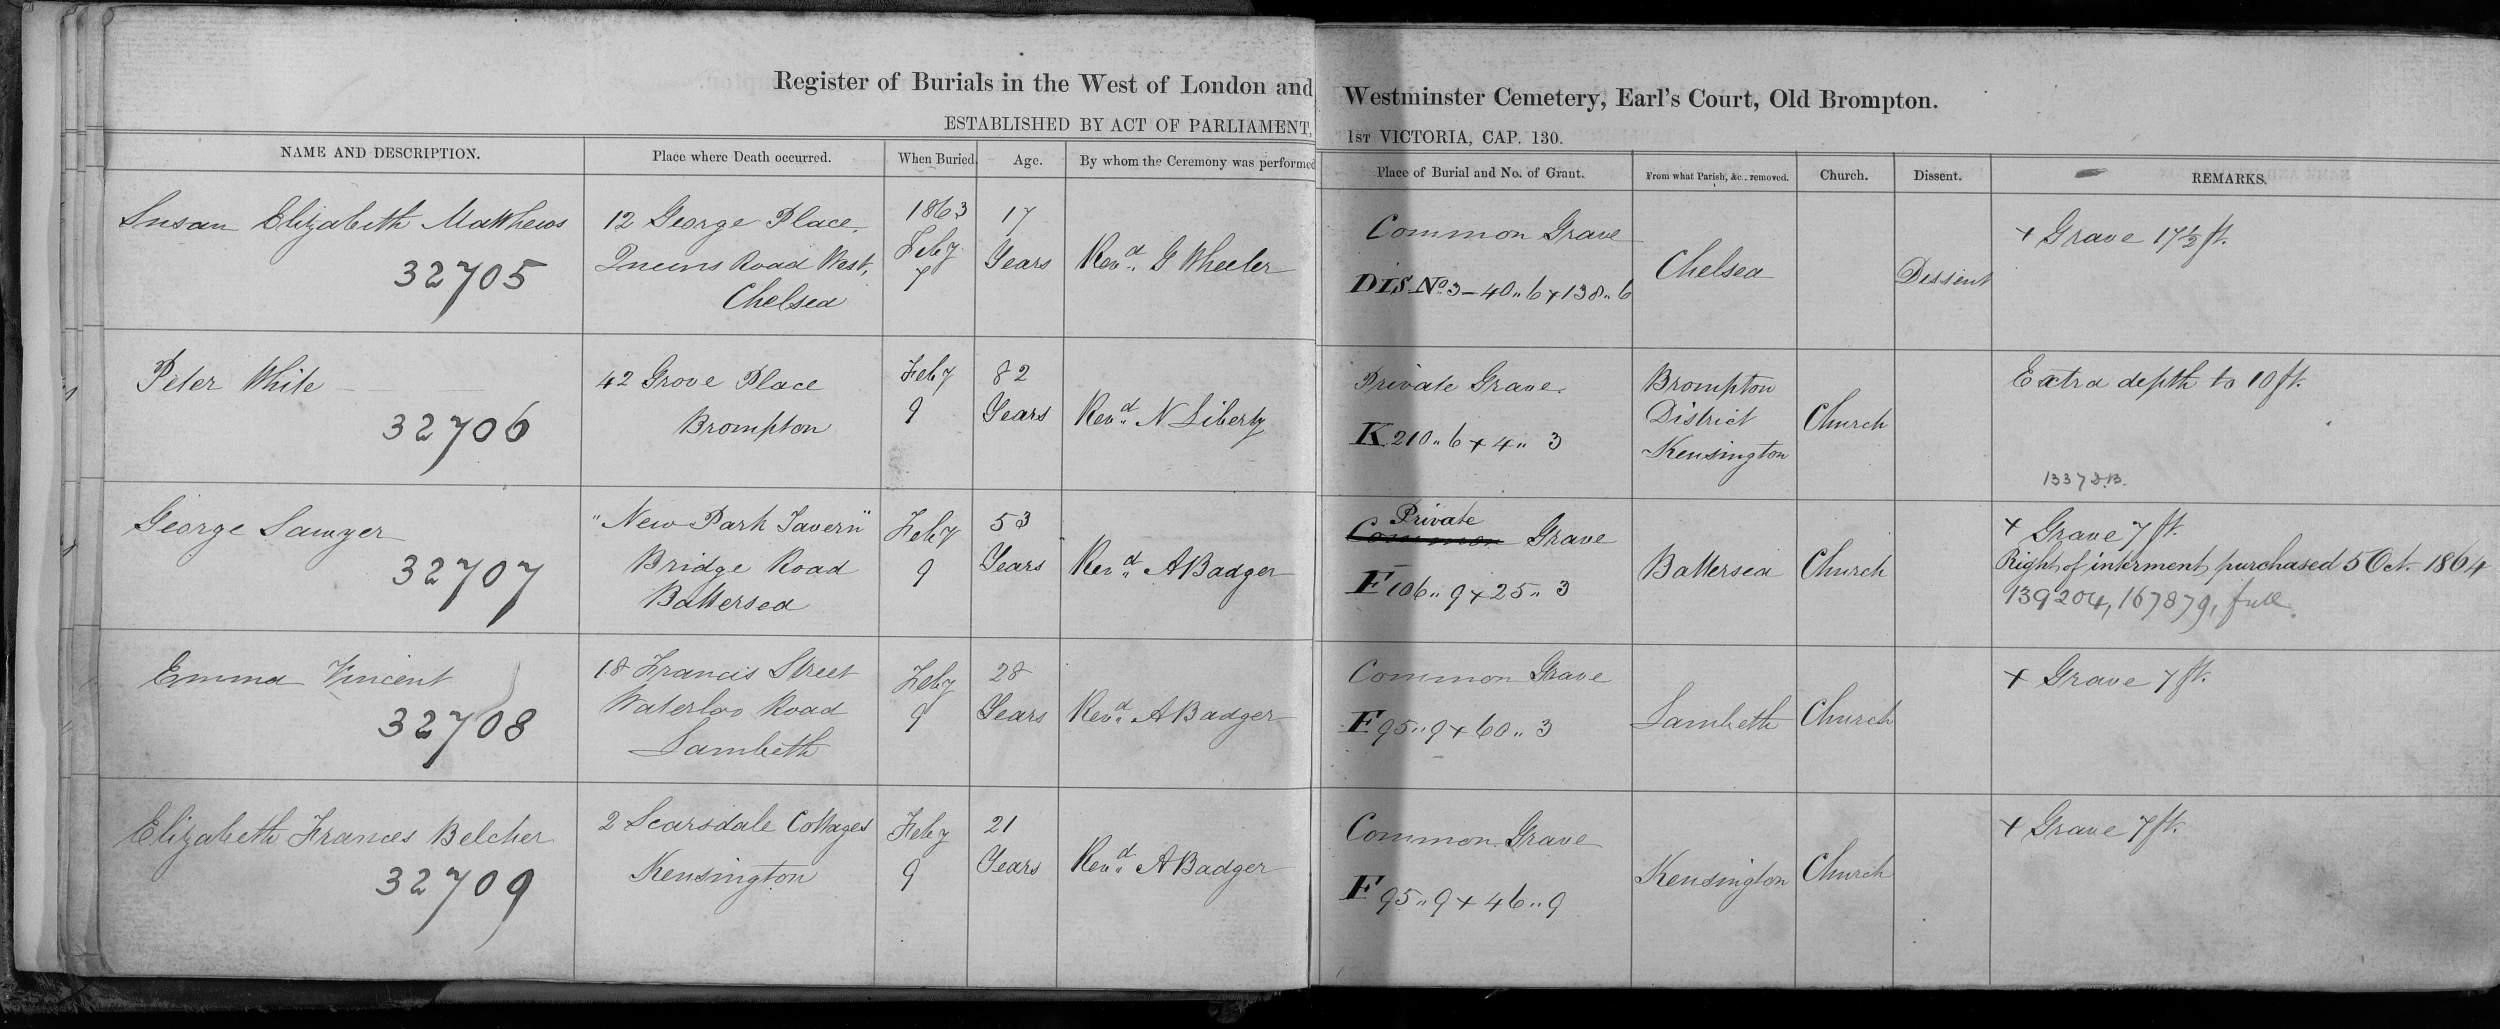 Register of Burials in the West of London and Westminster Cemetery, Earl's Court, Old Brompton.
ESTABLISHED BY ACT OF PARLIAMENT, 1ST VICTORIA, CAP. 130.
NAME AND DESCRIPTION. Place where Death occurred. When Buried. Age. By whom the Ceremony was performed Place of Burial and No. of Grant. From what Parish, &c., removed. Church. Dissent. REMARKS.
Susan Elizabeth Matthews
32705
12 George Place,
Queens Road West,
Chelsea
1863
Feby
7
17
Years
Revd. G Wheeler
Common Grave
DIS No 3 - 40 " 6 x 138 " 6
Chelsea
Dissent
x Grave 17½ ft.
Peter White
32706
42 Grove Place
Brompton
Feby
9
82
Years
Revd. N Liberty
Private Grave.
K 210 " 6 x 4 " 3
Brompton
District
Kensington
Church
Extra depth to 10 ft.
George Sawyer
32707
"New Park Tavern"
Bridge Road
Battersea
Feby
9
53
Years
Revd. A Badger
Private
Common Grave
F 106 " 9 x 25 " 3
Battersea
Church
x Grave 7 ft.
Right of interment purchased 5 Oct. 1864
139204, 167879, full.
Emma Vincent
32708
18 Francis Street
Waterloo Road
Lambeth
Feby
9
28
Years
Revd. A Badger
Common Grave
F 95 " 9 x 60 " 3
Lambeth
Church
x Grave 7 ft.
Elizabeth Frances Belcher
32709
2 Scarsdale Cottages
Kensington
Feby
9
21
Years
Revd. A Badger
Common Grave
F 95 " 9 x 46 " 9
Kensington
Church
x Grave 7 ft.